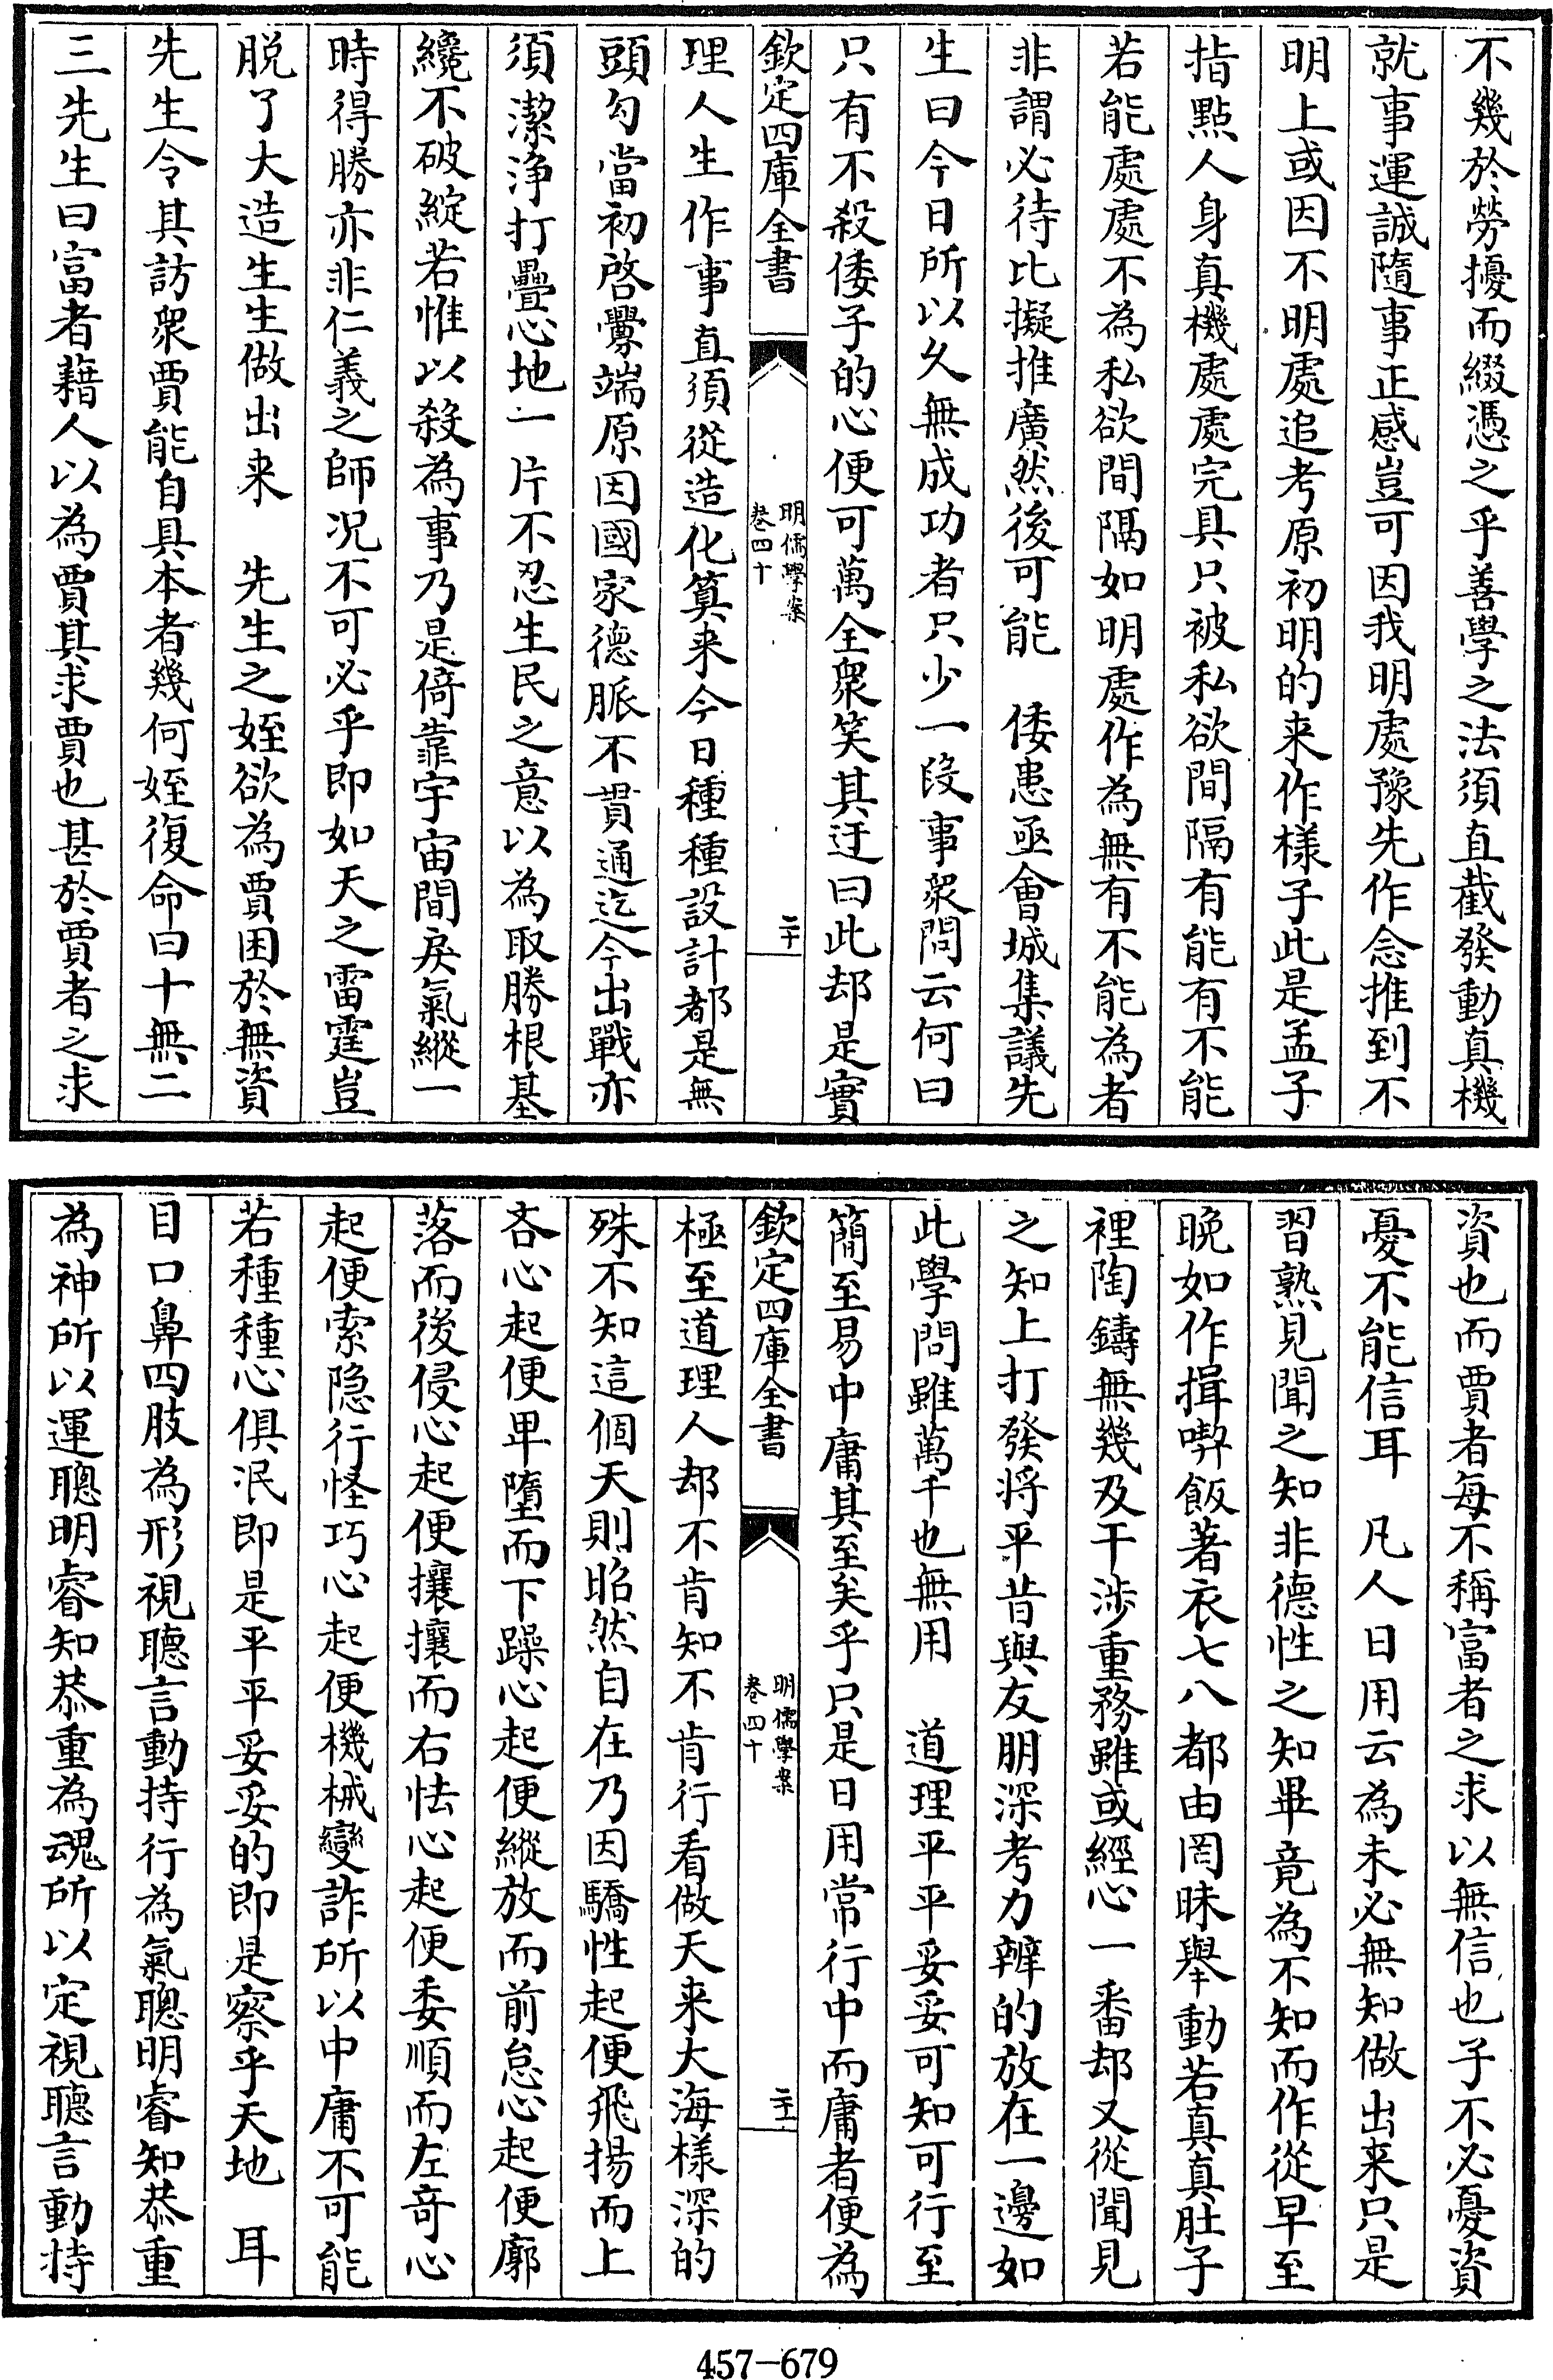 不幾於勞擾而綴憑之乎善學之法須直截發動真機
就事運誠隨事正感豈可因我明處豫先作念推到不
明上或因不明處追考原初明的来作樣子此是孟子
指點人身真機處處完具只被私欲間隔有能有不能
若能處處不為私欲間隔如明處作為無有不能為者
非謂必待比擬推廣然後可能　倭患亟會城集議先
生曰今日所以久無成功者只少一段事衆問云何曰
只有不殺倭子的心便可萬全衆笑其迂曰此却是實
欽定四庫全書
明儒學案
卷四十
二十
理人生作事直須從造化算来今日種種設計都是無
頭勾當初啓釁端原因國家德脈不貫通迄今出戰亦
須潔浄打疊心地一片不忍生民之意以為取勝根基
纔不破綻若惟以殺為事乃是倚靠宇宙間戾氣縱一
時得勝亦非仁義之師况不可必乎即如天之雷霆豈
脱了大造生生做出来　先生之姪欲為賈困於無資
先生令其訪衆賈能自具本者幾何姪復命曰十無二
三先生曰富者藉人以為賈其求賈也甚於賈者之求
資也而賈者每不稱富者之求以無信也子不必憂資
憂不能信耳　凡人日用云為未必無知做出来只是
習熟見聞之知非德性之知畢竟為不知而作從早至
晚如作揖喫飯著衣七八都由罔昧舉動若真真肚子
裡陶鑄無幾及干涉重務雖或經心一番却又從聞見
之知上打發將平昔與友朋深考力辨的放在一邊如
此學問雖萬千也無用　道理平平妥妥可知可行至
簡至易中庸其至矣乎只是日用常行中而庸者便為
欽定四庫全書
明儒學案
卷四十
二十一
極至道理人却不肯知不肯行看做天来大海樣深的
殊不知這個天則昭然自在乃因驕性起便飛揚而上
吝心起便卑墮而下躁心起便縱放而前怠心起便廓
落而後侵心起便攘攘而右怯心起便委順而左奇心
起便索隐行怪巧心起便機械變詐所以中庸不可能
若種種心俱泯即是平平妥妥的即是察乎天地　耳
目口鼻四肢為形視聽言動持行為氣聰明睿知恭重
為神所以運聰明睿知恭重為魂所以定視聽言動持
457-679